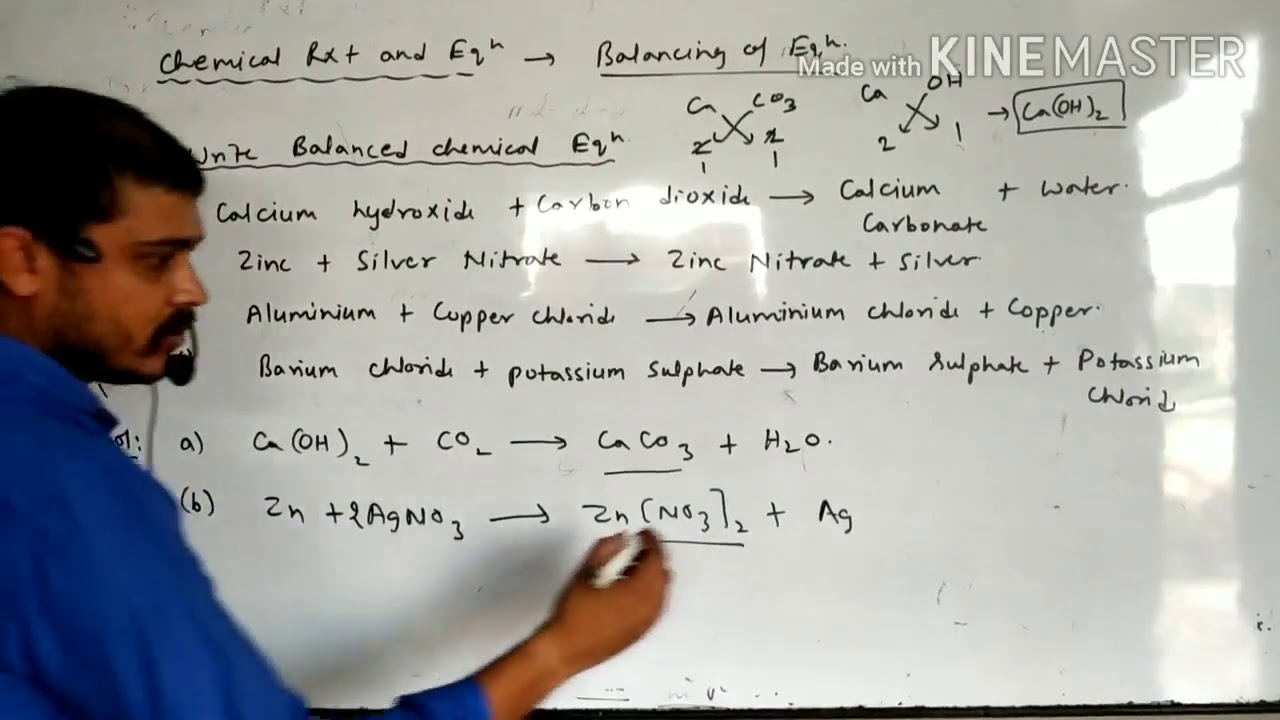 Chemical Rxt and Eqⁿ → Balancing of Eqⁿ.
Made with KINEMASTER
Ca CO₃ Ca OH → Ca(OH)₂
2 2 2 1
1 1
Write Balanced chemical Eqⁿ.
Calcium hydroxide + Carbon dioxide → Calcium Carbonate + water.
Zinc + Silver Nitrate → Zinc Nitrate + Silver.
Aluminium + Copper chloride → Aluminium chloride + Copper.
Barium chloride + potassium sulphate → Barium sulphate + Potassium Chlorid
a) Ca(OH)₂ + CO₂ → CaCO₃ + H₂O.
(b) Zn + 2AgNO₃ → Zn[NO₃]₂ + Ag